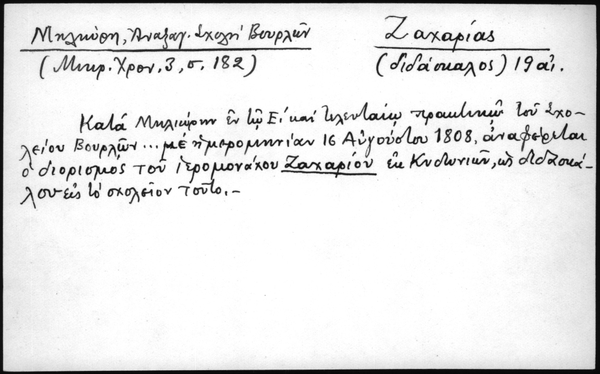 Μηλιώρη, Ἀναξαγ. Σχολή Βουρλῶν
(Μικρ. Χρον. 3, σ. 182)
Ζαχαρίας
(διδάσκαλος) 19 αἰ.
Κατά Μηλιώρην ἐν τῷ Εἰ καί τελευταίῳ πρακτικῷ τοῦ Σχο-
λείου Βουρλῶν ... μέ ἡμερομηνίαν 16 Αὐγούστου 1808, ἀναφέρεται
ὁ διορισμός τοῦ ἱερομονάχου Ζαχαρίου ἐκ Κυδωνιῶν, ὡς διδασκά-
λου εἰς τό σχολεῖον τοῦτο.-